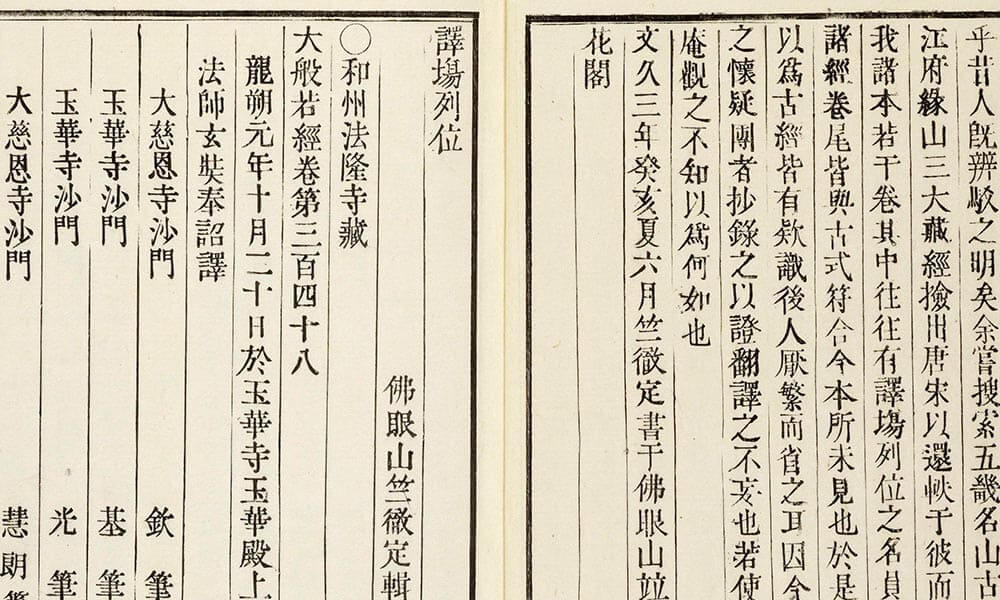 乎昔人既辨駁之明矣余嘗搜索五畿名山古
江府緣山三大藏經撿出唐宋以還帙于彼而
我諸本若干卷其中往往有譯場列位之名員
諸經卷尾皆與古式符合今本所未見也於是
以爲古經皆有欵識後人厭繁而省之耳因今
之懷疑團者抄錄之以證翻譯之不妄也若使
庵觀之不知以爲何如也
文久三年癸亥夏六月竺徹定書于佛眼山竝
花閣
譯場列位
佛眼山竺徹定輯
〇和州法隆寺藏
大般若經卷第三百四十八
龍朔元年十月二十日於玉華寺玉華殿上
法師玄奘奉詔譯
大慈恩寺沙門 欽 筆
玉華寺沙門 基 筆
玉華寺沙門 光 筆
大慈恩寺沙門 慧朗筆